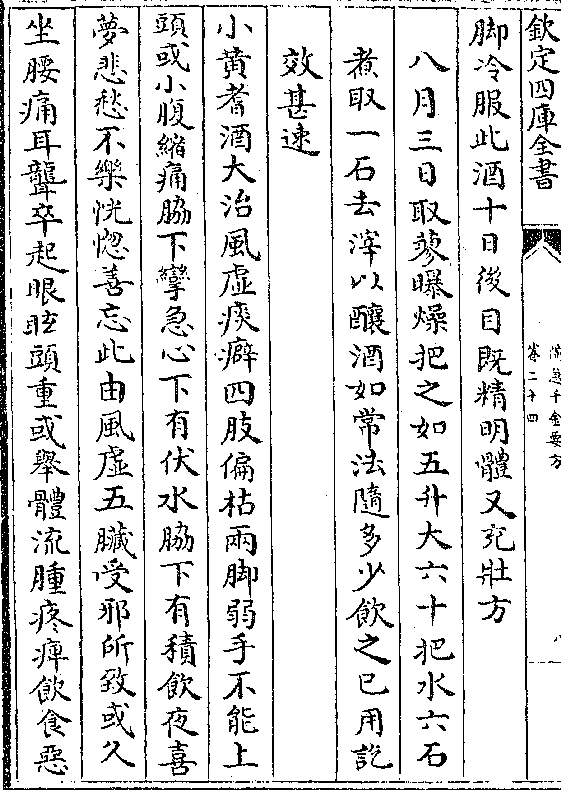 欽定四庫全書
備急千金要方
卷二十四
八
脚冷服此酒十日後目既精明體又充壯方
八月三日取蓼曝燥把之如五升大六十把水六石
煮取一石去滓以釀酒如常法隨多少飲之已用訖
效甚速
小黃耆酒大治風虛痰癖四肢偏枯兩脚弱手不能上
頭或小腹縮痛脇下攣急心下有伏水脇下有積飲夜喜
夢悲愁不樂恍惚善忘此由風虛五臟受邪所致或久
坐腰痛耳聾卒起眼眩頭重或舉體流腫疼痺飲食惡